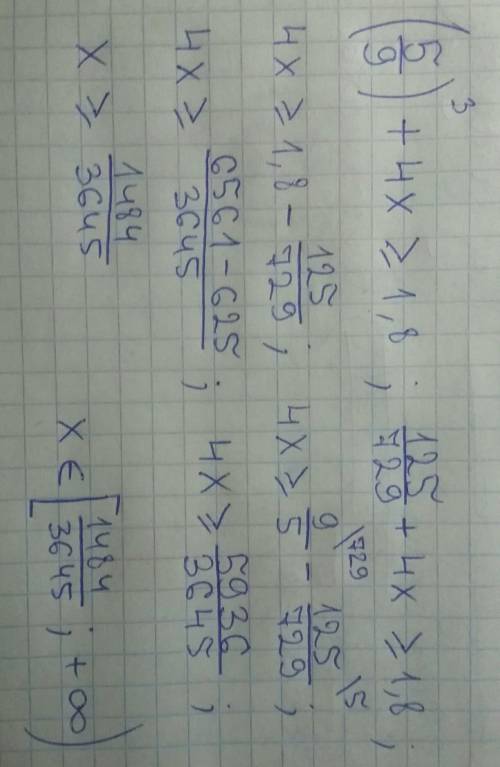 (5/9)³ + 4x ⩾ 1,8 ; 125/729 + 4x ⩾ 1,8 ;
4x ⩾ 1,8 − 125/729 ; 4x ⩾ 9/5 \729 − 125/729 \5 ;
4x ⩾ (6561 − 625)/3645 ; 4x ⩾ 5936/3645 ;
x ⩾ 1484/3645 x ∈ [1484/3645 ; +∞)